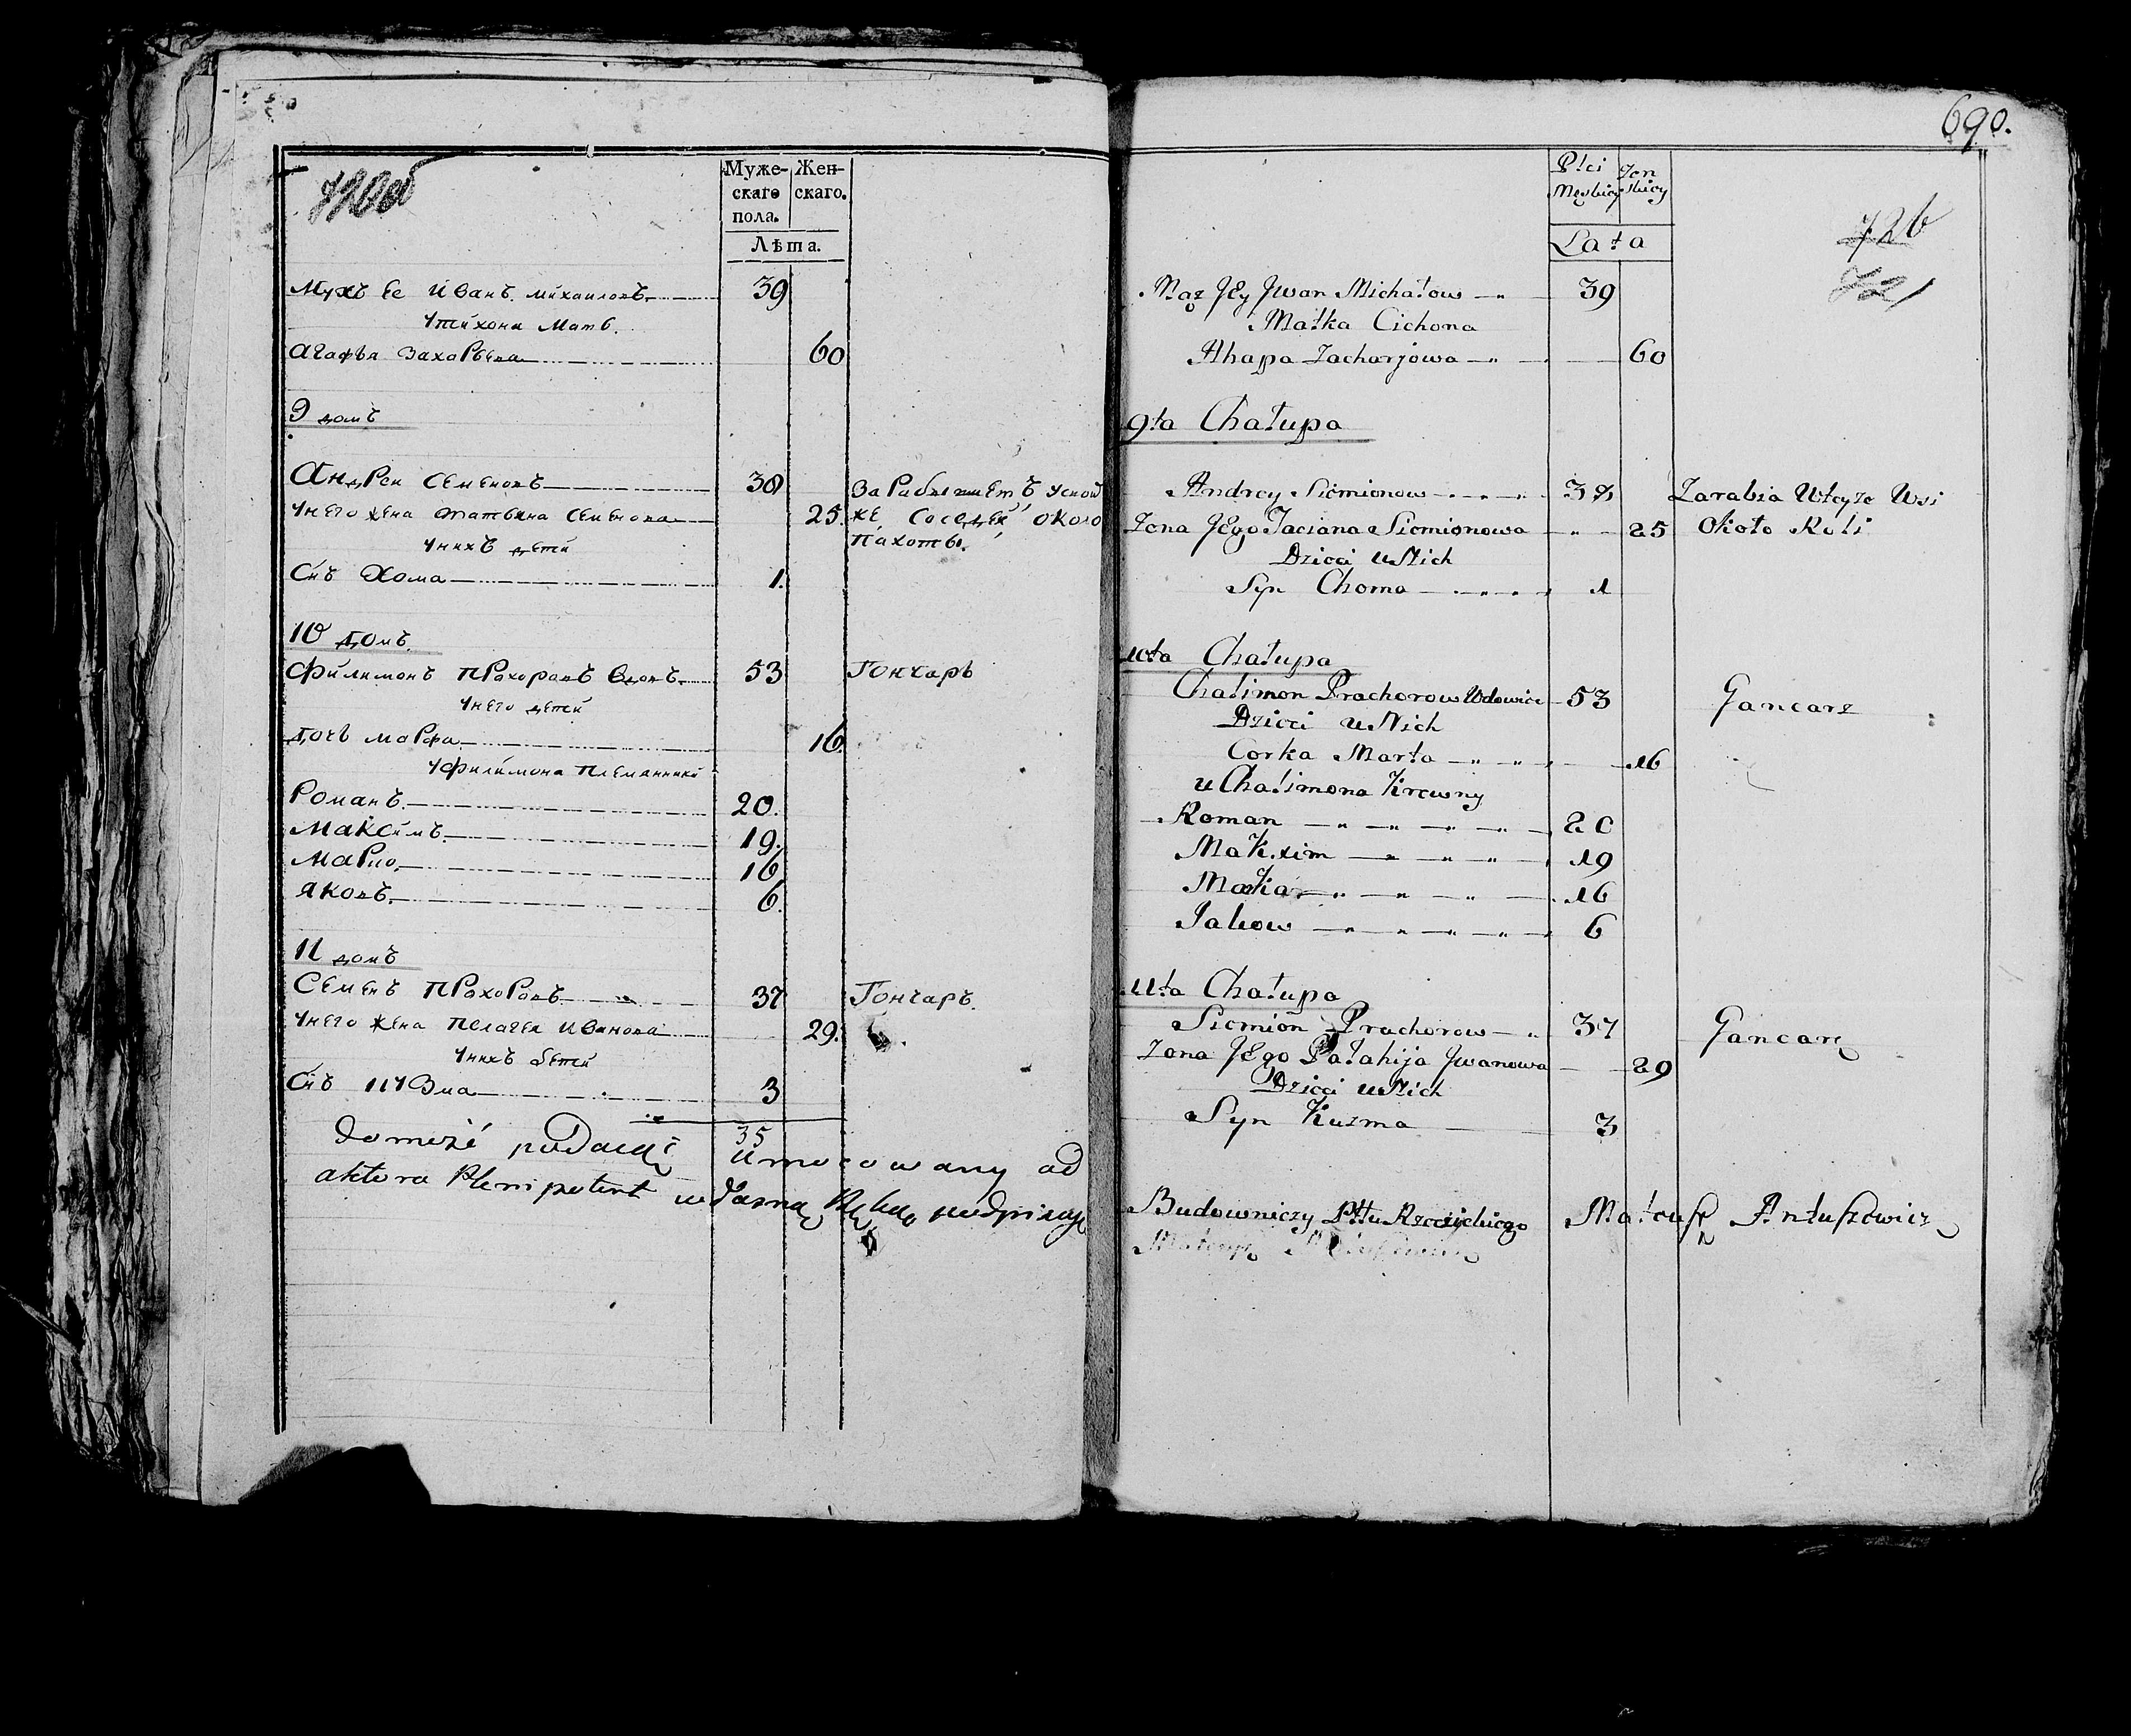 720об
Муже-
скаго
пола.
Жен-
скаго.
Лѣта.
Мужъ Ее Иванъ Михаиловъ 39
У Тихона Мать
Агафья Захарьева 60
9 домъ
Андреи Семеновъ 38 Зарабливаетъ
У него жена Татьяна Семенова 25. же соседей около
У нихъ дети пахоты.
Снъ Хома 1.
10 домъ.
Филимонъ Прохоровъ Вдовъ 53 Гончаръ
У него детей
Дочь Марфа 16.
У Филимона Племянники
Романъ. 20.
Максимъ. 19.
16
Яковъ. 6.
11 домъ
Семенъ Прохоровъ 37 Гончаръ.
У него жена Пелагея Иванова 29.
У нихъ детей
Снъ 3
35
umocowany od
aktora Plenipotent własną Ręką podpisuję
690.
Płci
Męskicy
Żen
skicy
Lata
726
721
Mąż Jey Jwan Michałow 39
Matka Cichona
Ahapa Zacharjowa 60
9ta Chałupa
Andrey Siemionow 38 Zarabia Wteyże Wsi
Żona Jego Taciana Siemionowa 25 Około Roli
Dzieci u Nich
Syn Choma 1
10ta Chałupa
Chalimon Prachorow Wdowiec 53 Gancarz
Dzieci u Nich
Corka Marta 16
u Chalimona Krewny
Roman 20
Makxim 19
Makar 16
Jakow 6
11ta Chałupa
Siemion Prachorow 37 Gancarz
Żona Jego Pałahija Jwanowa 29
Dzieci u Nich
Syn Kuzma 3
Budowniczy Pttu Rzeczyckiego Mateusz Antuszewicz